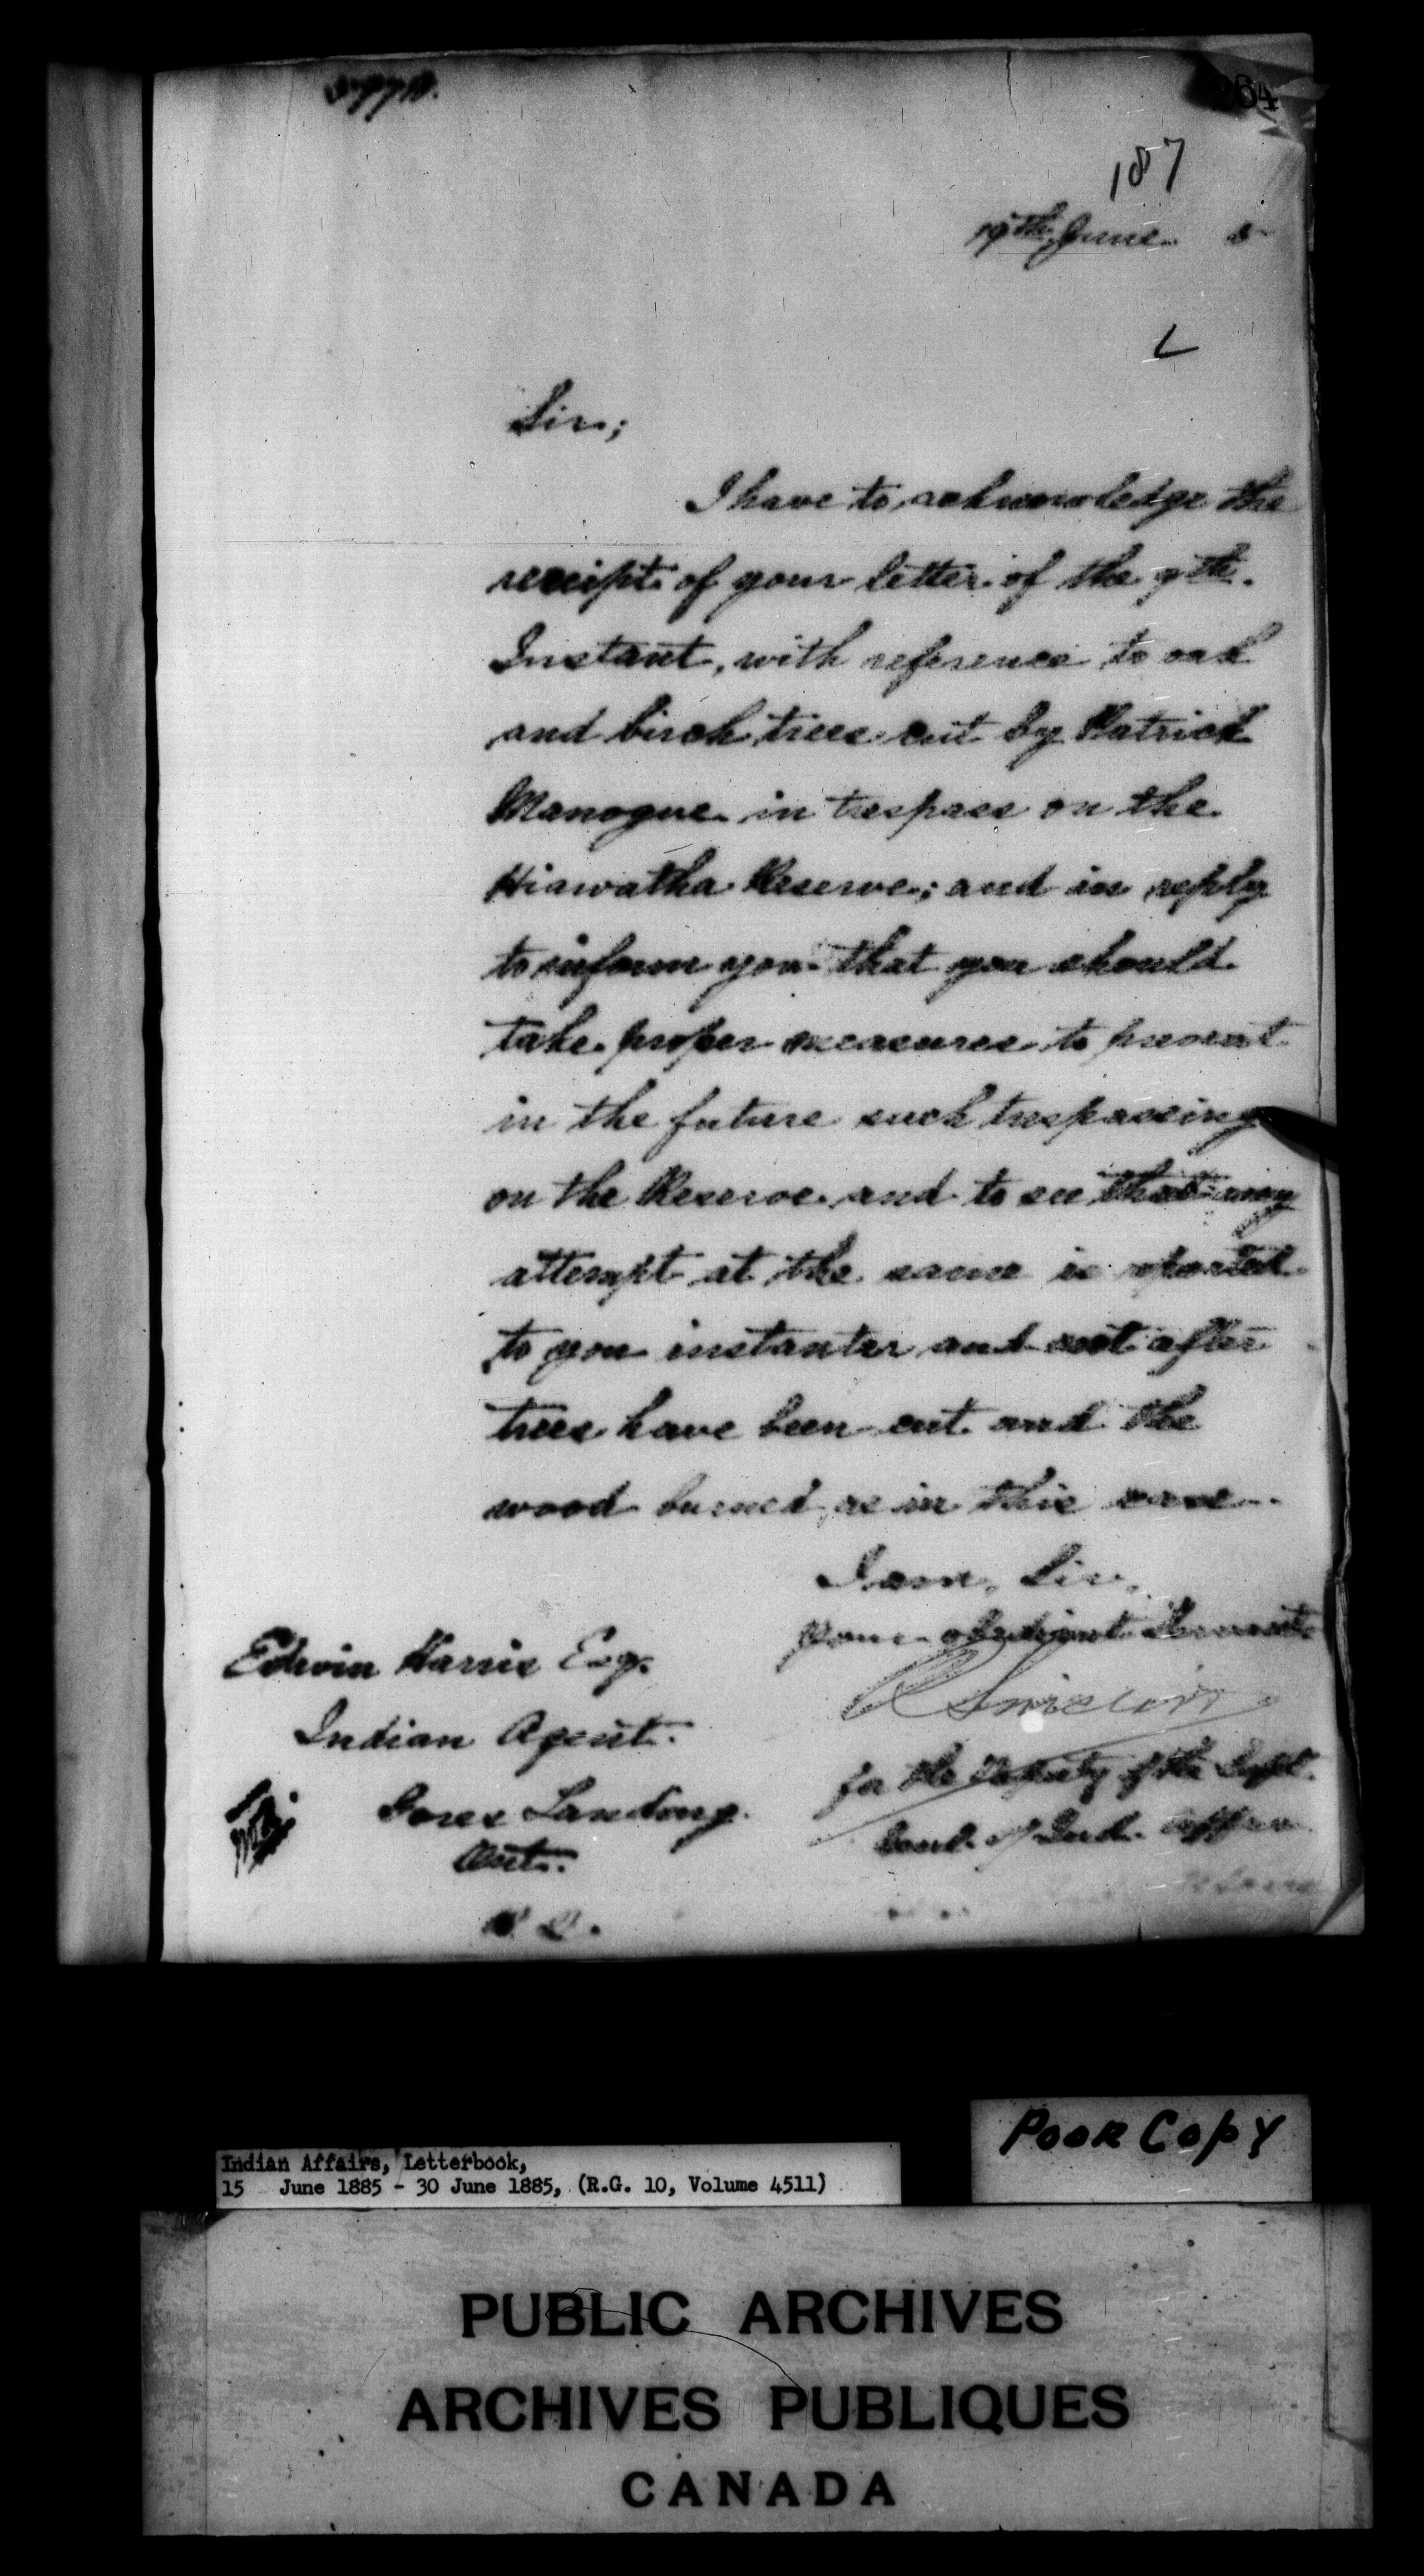 264
187
19th June 5
Sir;
I have to acknowledge the
receipt of your letter of the 9th.
Instant, with reference to oak
and birch trees cut by Patrick
Manogue in trespass on the
Hiawatha Reserve; and in reply
to inform you that you should
take proper measures to prevent
in the future such trespassing
on the Reserve and to see that any
attempt at the same is reported
to you instanter and not after
trees have been cut and the
wood burned, as in this case.
I am, Sir,
Your obedient Servant
Edwin Harris Esq.
Indian Agent.
Gores Landing
Ont.
R Sinclair
for the Deputy of the Supt.
Genl. of Ind. Affrs
Poor Copy
Indian Affairs, Letterbook,
15 June 1885 - 30 June 1885, (R.G. 10, Volume 4511)
PUBLIC ARCHIVES
ARCHIVES PUBLIQUES
CANADA